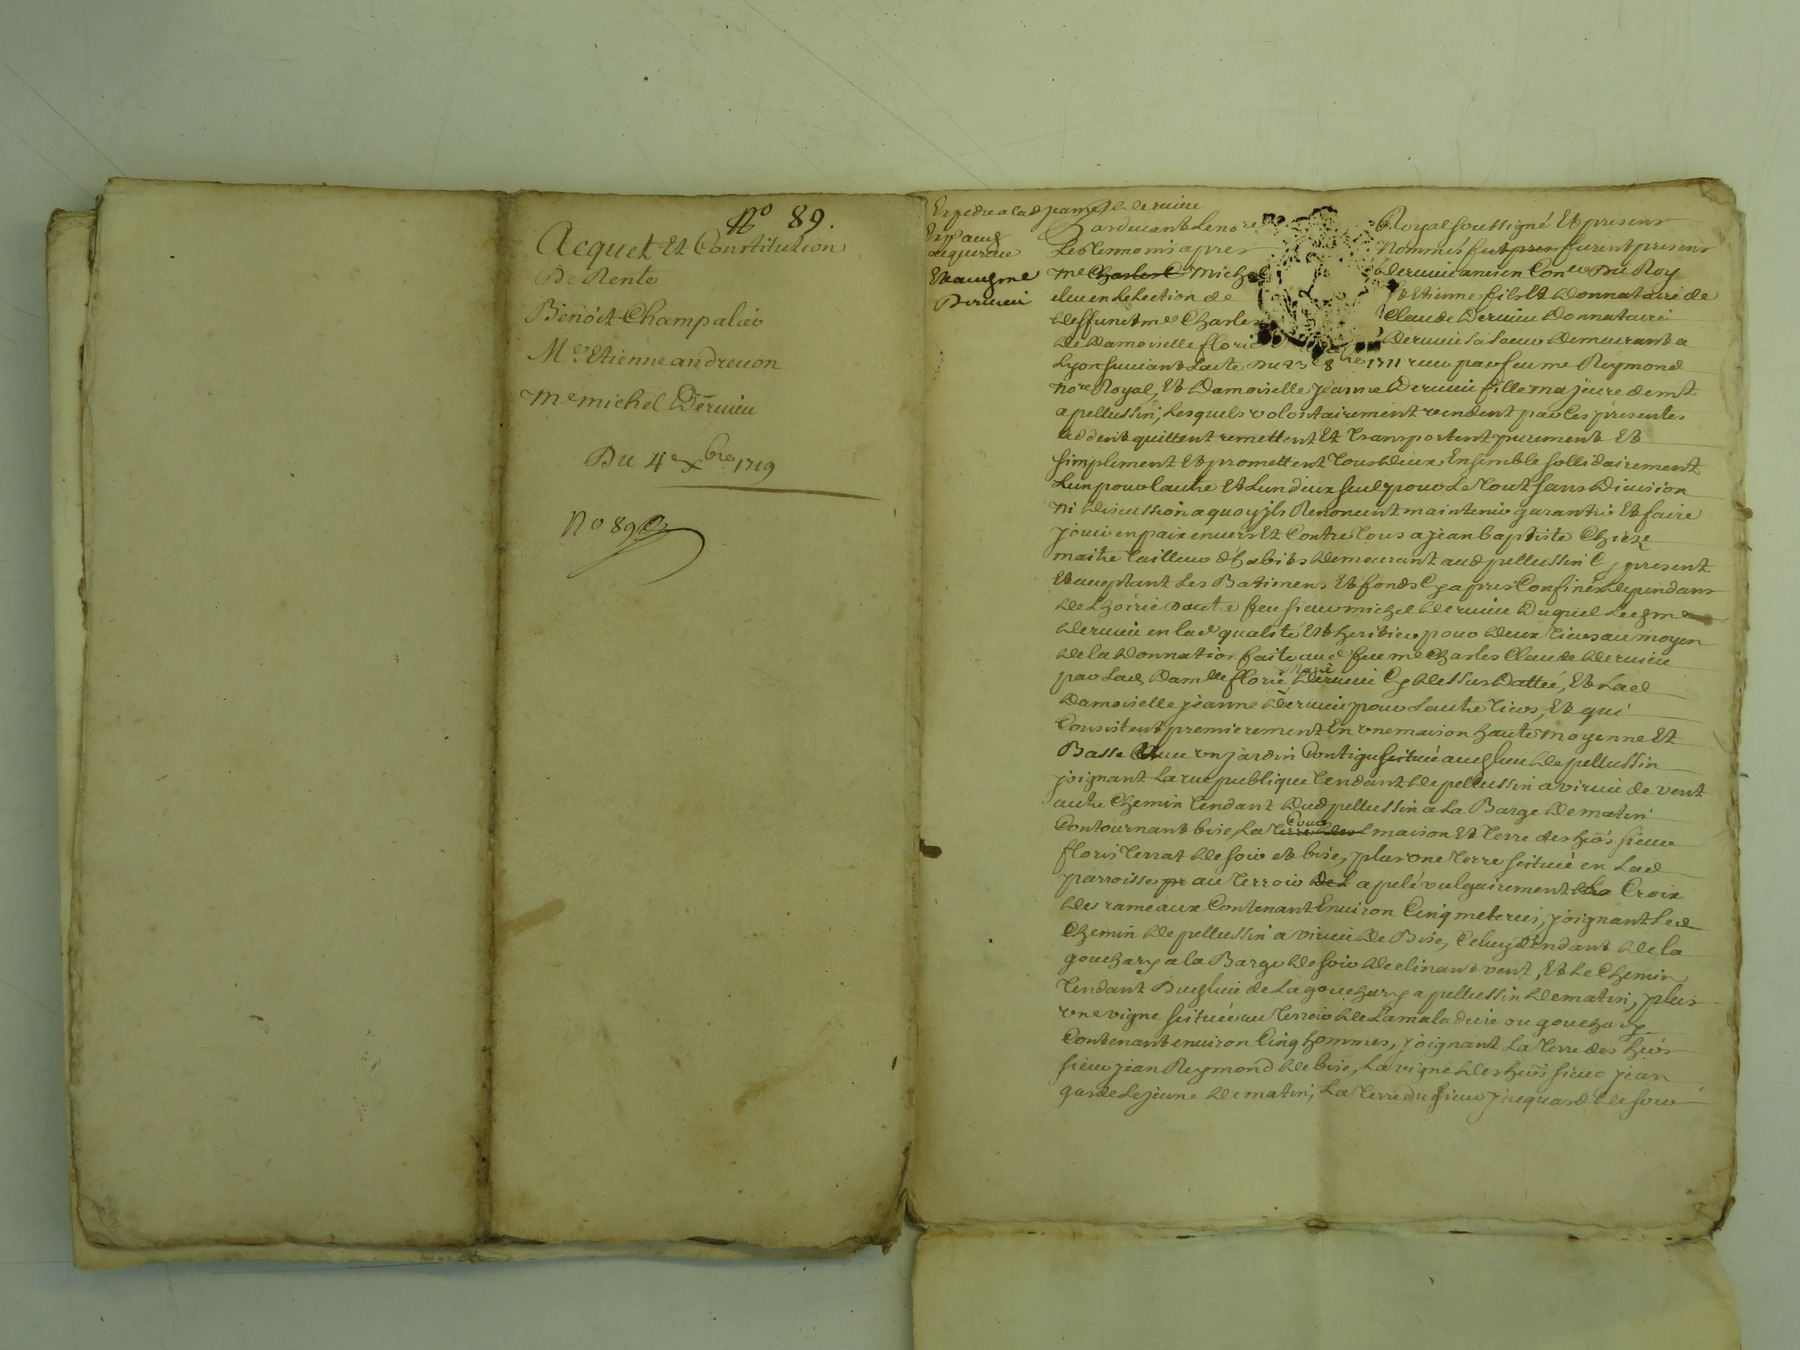 No 89.
Acquet Et Constitution
De Rente
Benoit Champalier
Me Etienne andreuon
Me michel Deruieu
Du 4e xbre 1719
No 89
Expedié a lad jeanne Deruieu
Exp aud
acquereur
Et aud me
Deruieu
Pardeuant Le nore Royal soussigné Et presens
Les temoins apres nommés fut pres furent presens
me Charles C michel Deruieu ancien Coner Du Roy
eleu en Lelection de St Etienne fils Et Donnataire de
deffunct me Charles Claude Deruieu Donnataire
de Damoiselle florie Deruieu sa soeur demeurant a
Lyon suiuant Lacte Du 23e 8bre 1711 receu par feu me Reymond
nore Royal, Et Damoiselle jeanne Deruieu fille majeure demt
a pellussin, Lesquels volontairement vendent par les presentes
cedent quittent remettent Et transportent purement Et
simplement Et promettent tous deux Ensemble sollidairement
Lun pour lautre Et Lun deux seul pour Le tout sans Diuision
ni discussion a quoy jls Renoncent maintenir garantir Et faire
jouir en paix enuers Et Contre tous a jean baptiste Chieze
maitre tailleur d'habits demeurant aud pellussin Cy present
Et acceptant Les Batimens Et fonds Cy apres Confinés dependans
de Lhoirie dautre feu sieur michel deruieu Duquel Led me
deruieu en lad qualité Est heritier pour deux tiers au moyen
de la donnation faite aud feu me Charles Claude deruieu
par Lad Damlle florie marie Deruieu Cy dessus Dattée, Et Lad
Damoiselle jeanne deruieu pour Lautre tiers, Et qui
Consistent premierement En vne maison haute moyenne Et
Basse Auec vn jardin Contigu scitué aud lieu de pellussin
joignant La rue publique tendant de pellussin a virieu de vent
autre Chemin tendant dud pellussin a La Barge de matin
Contournant bise, La terre des Cour maison Et terre des hers sieur
floris terrat de soir et bise, plus vne terre scituée en Lad
parroisse pr au terroir de L apelé vulgairement La Croix
des rameaux Contenant Enuiron Cinq meterées, joignant Led
Chemin de pellussin a virieu de Bise, Celuy tendant de la
gouchary a la Barge de soir declinant vent, Et Le Chemin
tendant Dud lieu de La gouchary a pellussin de matin, plus
vne vigne scituée au terroir de Lamaladiere ou gouchary
Contenant enuiron Cinq hommes, joignant La terre des hers
sieur jean Reymond de bise, La vigne des hers sieur jean
garde Lejeune de matin, La terre du sieur jacquard de soir